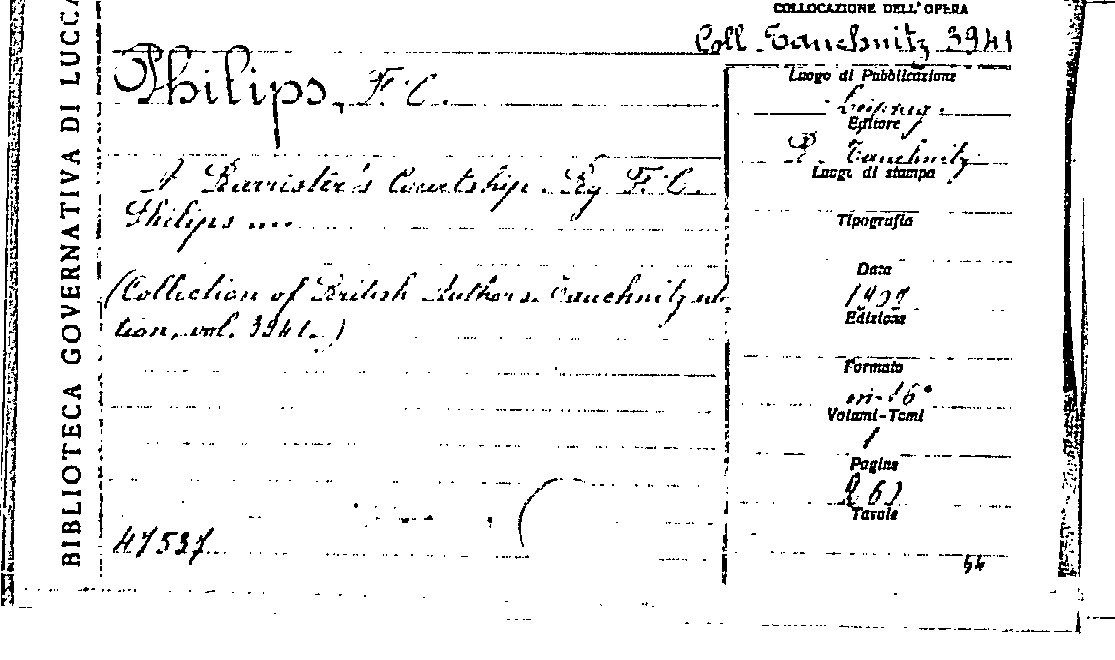 BIBLIOTECA GOVERNATIVA DI LUCCA
COLLOCAZIONE DELL'OPERA
Coll. Tauchnitz 3941
Philips, F. C.
A Barrister's Courtship. By F. C.
Philips ...
(Collection of British Authors. Tauchnitz edi-
tion, vol. 3941.)
47537
Luogo di Pubblicazione
Leipzig.
Editore
B. Tauchnitz
Luogo di stampa
Tipografia
Data
1907
Edizione
Formato
in-16°
Volumi-Tomi
1
Pagine
Tavole